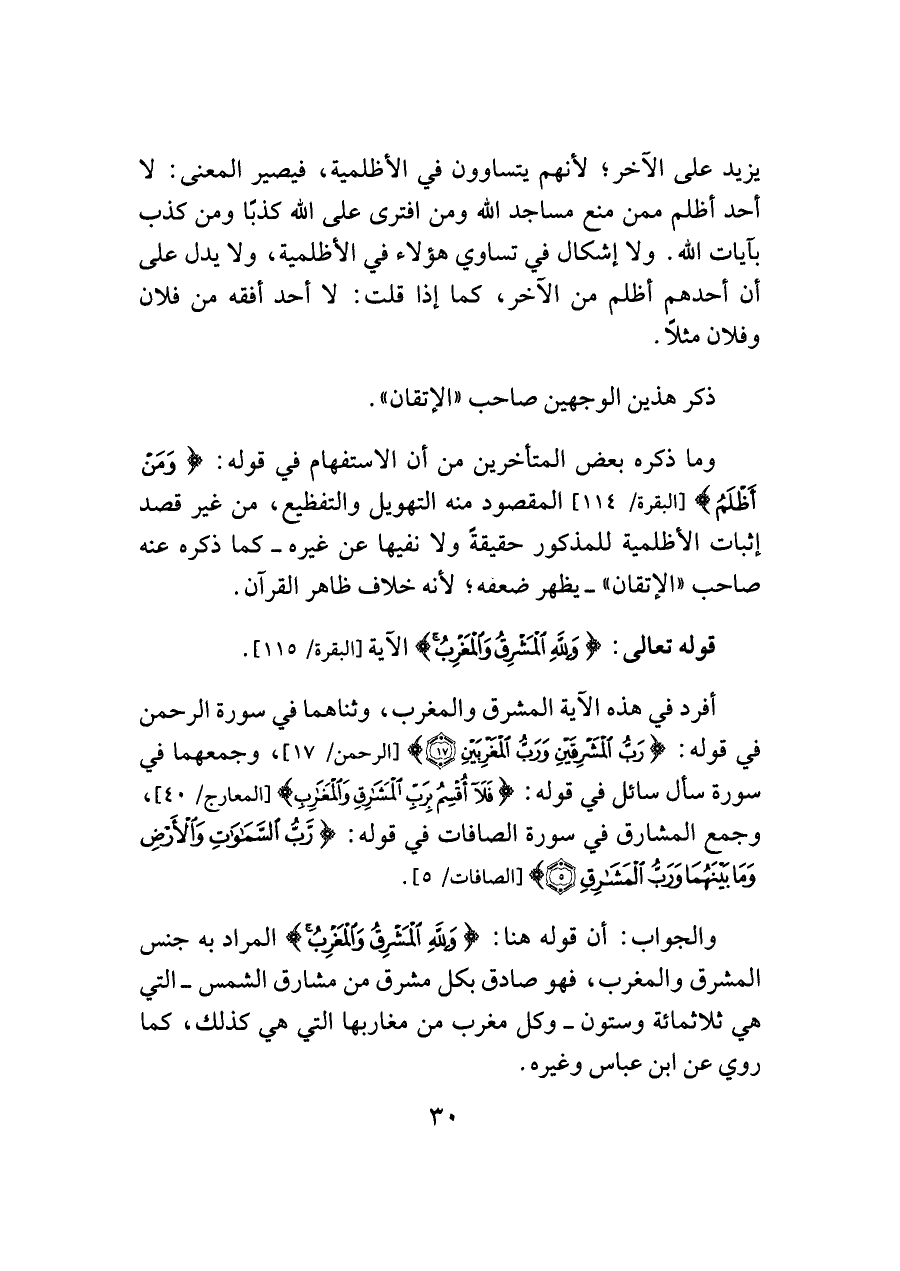 يزيد على الآخر؛ لأنهم يتساوون في الأظلمية، فيصير المعنى: لا
أحد أظلم ممن منع مساجد الله ومن افترى على الله كذبًا ومن كذب
بآيات الله. ولا إشكال في تساوي هؤلاء في الأظلمية، ولا يدل على
أن أحدهم أظلم من الآخر، كما إذا قلت: لا أحد أفقه من فلان
وفلان مثلاً.
ذكر هذين الوجهين صاحب «الإتقان».
وما ذكره بعض المتأخرين من أن الاستفهام في قوله: ﴿ وَمَنْ
أَظْلَمُ ﴾ [البقرة/ ١١٤] المقصود منه التهويل والتفظيع، من غير قصد
إثبات الأظلمية للمذكور حقيقةً ولا نفيها عن غيره ـ كما ذكره عنه
صاحب «الإتقان» ـ يظهر ضعفه؛ لأنه خلاف ظاهر القرآن.
قوله تعالى: ﴿ وَلِلَّهِ ٱلْمَشْرِقُ وَٱلْمَغْرِبُ ۚ ﴾ الآية [البقرة/ ١١٥].
أفرد في هذه الآية المشرق والمغرب، وثناهما في سورة الرحمن
في قوله: ﴿ رَبُّ ٱلْمَشْرِقَيْنِ وَرَبُّ ٱلْمَغْرِبَيْنِ ١٧ ﴾ [الرحمن/ ١٧]، وجمعهما في
سورة سأل سائل في قوله: ﴿ فَلَآ أُقْسِمُ بِرَبِّ ٱلْمَشَٰرِقِ وَٱلْمَغَٰرِبِ ﴾ [المعارج/ ٤٠]،
وجمع المشارق في سورة الصافات في قوله: ﴿ رَّبُّ ٱلسَّمَٰوَٰتِ وَٱلْأَرْضِ
وَمَا بَيْنَهُمَا وَرَبُّ ٱلْمَشَٰرِقِ ٥ ﴾ [الصافات/ ٥].
والجواب: أن قوله هنا: ﴿ وَلِلَّهِ ٱلْمَشْرِقُ وَٱلْمَغْرِبُ ۚ ﴾ المراد به جنس
المشرق والمغرب، فهو صادق بكل مشرق من مشارق الشمس ـ التي
هي ثلاثمائة وستون ـ وكل مغرب من مغاربها التي هي كذلك، كما
روي عن ابن عباس وغيره.
٣٠